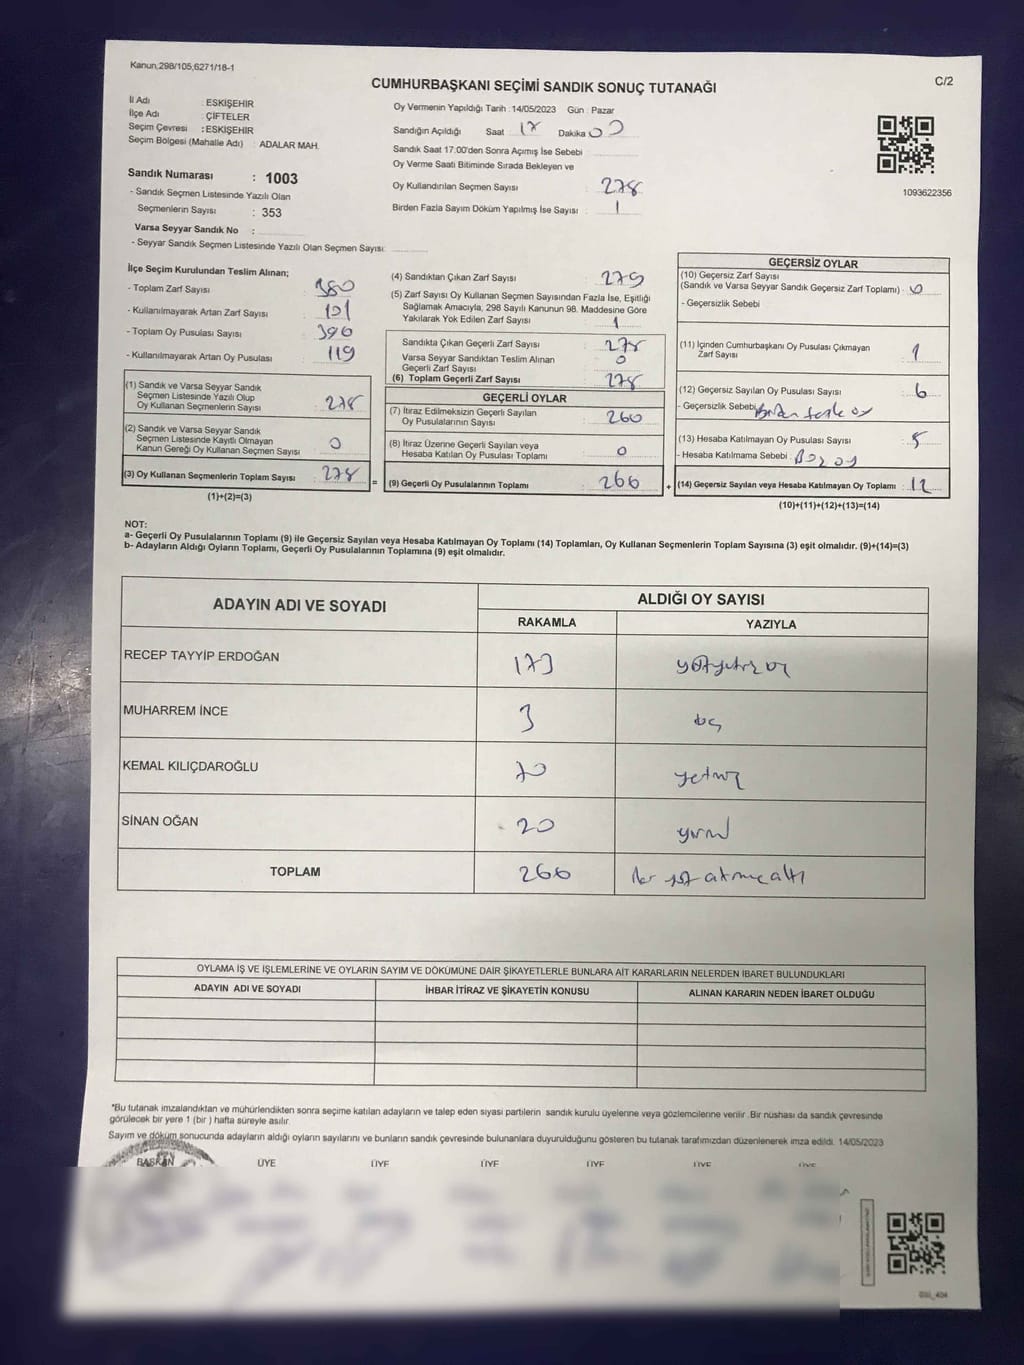 Kanun,298/105,6271/18-1
C/2
CUMHURBAŞKANI SEÇİMİ SANDIK SONUÇ TUTANAĞI
İl Adı : ESKİŞEHİR
İlçe Adı : ÇİFTELER
Seçim Çevresi : ESKİŞEHİR
Seçim Bölgesi (Mahalle Adı) : ADALAR MAH.
Sandık Numarası : 1003
- Sandık Seçmen Listesinde Yazılı Olan
Seçmenlerin Sayısı : 353
Varsa Seyyar Sandık No :
- Seyyar Sandık Seçmen Listesinde Yazılı Olan Seçmen Sayısı:
Oy Vermenin Yapıldığı Tarih : 14/05/2023 Gün : Pazar
Sandığın Açıldığı Saat 17 Dakika 00
Sandık Saat 17.00'den Sonra Açımış İse Sebebi
Oy Verme Saati Bitiminde Sırada Bekleyen ve
Oy Kullandırılan Seçmen Sayısı : 278
Birden Fazla Sayım Döküm Yapılmış İse Sayısı : 1
1093622356
İlçe Seçim Kurulundan Teslim Alınan;
- Toplam Zarf Sayısı : 380
- Kullanılmayarak Artan Zarf Sayısı : 101
- Toplam Oy Pusulası Sayısı : 396
- Kullanılmayarak Artan Oy Pusulası : 119
(1) Sandık ve Varsa Seyyar Sandık
Seçmen Listesinde Yazılı Olup
Oy Kullanan Seçmenlerin Sayısı : 278
(2) Sandık ve Varsa Seyyar Sandık
Seçmen Listesinde Kayıtlı Olmayan
Kanun Gereği Oy Kullanan Seçmen Sayısı : 0
(3) Oy Kullanan Seçmenlerin Toplam Sayısı : 278 =
(1)+(2)=(3)
(4) Sandıktan Çıkan Zarf Sayısı : 279
(5) Zarf Sayısı Oy Kullanan Seçmen Sayısından Fazla İse, Eşitliği
Sağlamak Amacıyla, 298 Sayılı Kanunun 98. Maddesine Göre
Yakılarak Yok Edilen Zarf Sayısı : 1
Sandıkta Çıkan Geçerli Zarf Sayısı : 278
Varsa Seyyar Sandıktan Teslim Alınan
Geçerli Zarf Sayısı : 0
(6) Toplam Geçerli Zarf Sayısı : 278
GEÇERLİ OYLAR
(7) İtiraz Edilmeksizin Geçerli Sayılan
Oy Pusulalarının Sayısı : 266
(8) İtiraz Üzerine Geçerli Sayılan veya
Hesaba Katılan Oy Pusulası Toplamı : 0
(9) Geçerli Oy Pusulalarının Toplamı : 266 +
GEÇERSİZ OYLAR
(10) Geçersiz Zarf Sayısı
(Sandık ve Varsa Seyyar Sandık Geçersiz Zarf Toplamı) : 0
- Geçersizlik Sebebi
(11) İçinden Cumhurbaşkanı Oy Pusulası Çıkmayan
Zarf Sayısı : 1
(12) Geçersiz Sayılan Oy Pusulası Sayısı : 6
- Geçersizlik Sebebi : Birden fazla oy
(13) Hesaba Katılmayan Oy Pusulası Sayısı : 5
- Hesaba Katılmama Sebebi : Boş oy
(14) Geçersiz Sayılan veya Hesaba Katılmayan Oy Toplamı : 12
(10)+(11)+(12)+(13)=(14)
NOT:
a- Geçerli Oy Pusulalarının Toplamı (9) ile Geçersiz Sayılan veya Hesaba Katılmayan Oy Toplamı (14) Toplamları, Oy Kullanan Seçmenlerin Toplam Sayısına (3) eşit olmalıdır. (9)+(14)=(3)
b- Adayların Aldığı Oyların Toplamı, Geçerli Oy Pusulalarının Toplamına (9) eşit olmalıdır.
ADAYIN ADI VE SOYADI ALDIĞI OY SAYISI
RAKAMLA YAZIYLA
RECEP TAYYİP ERDOĞAN 173 yüzyetmiş üç
MUHARREM İNCE 3 üç
KEMAL KILIÇDAROĞLU 70 yetmiş
SİNAN OĞAN 20 yirmi
TOPLAM 266 iki yüz atmış altı
OYLAMA İŞ VE İŞLEMLERİNE VE OYLARIN SAYIM VE DÖKÜMÜNE DAİR ŞİKAYETLERLE BUNLARA AİT KARARLARIN NELERDEN İBARET BULUNDUKLARI
ADAYIN ADI VE SOYADI İHBAR İTİRAZ VE ŞİKAYETİN KONUSU ALINAN KARARIN NEDEN İBARET OLDUĞU
*Bu tutanak imzalandıktan ve mühürlendikten sonra seçime katılan adayların ve talep eden siyasi partilerin sandık kurulu üyelerine veya gözlemcilerine verilir. Bir nüshası da sandık çevresinde
görülecek bir yere 1 (bir ) hafta süreyle asılır.
Sayım ve döküm sonucunda adayların aldığı oyların sayılarını ve bunların sandık çevresinde bulunanlara duyurulduğunu gösteren bu tutanak tarafımızdan düzenlenerek imza edildi. 14/05/2023
BAŞKAN ÜYE ÜYE ÜYE ÜYE ÜYE ÜYE